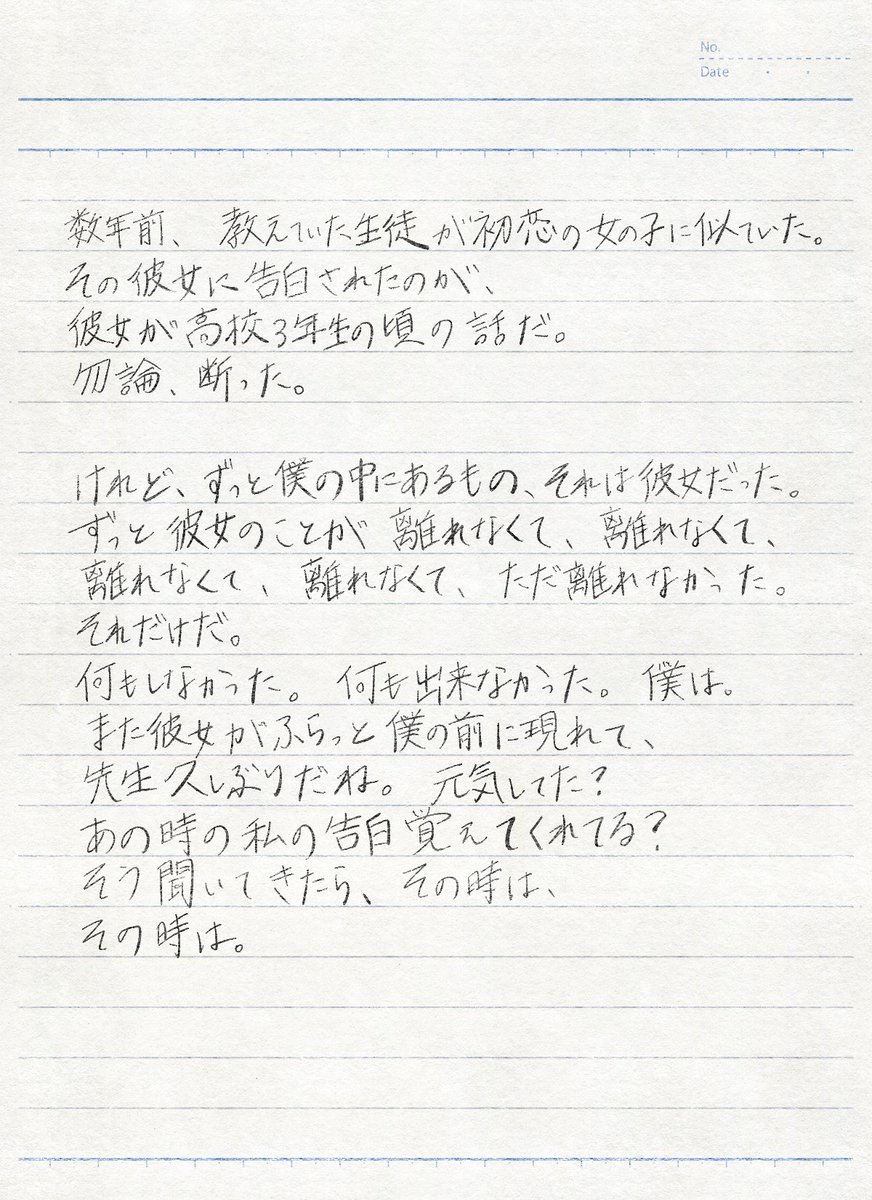 No.
Date
数年前、教えていた生徒が初恋の女の子に似ていた。
その彼女に告白されたのが、
彼女が高校3年生の頃の話だ。
勿論、断った。
けれど、ずっと僕の中にあるもの、それは彼女だった。
ずっと彼女のことが離れなくて、離れなくて、
離れなくて、離れなくて、ただ離れなかった。
それだけだ。
何もしなかった。何も出来なかった。僕は。
また彼女がふらっと僕の前に現れて、
先生久しぶりだね。元気してた?
あの時の私の告白覚えてくれてる?
そう聞いてきたら、その時は、
その時は。